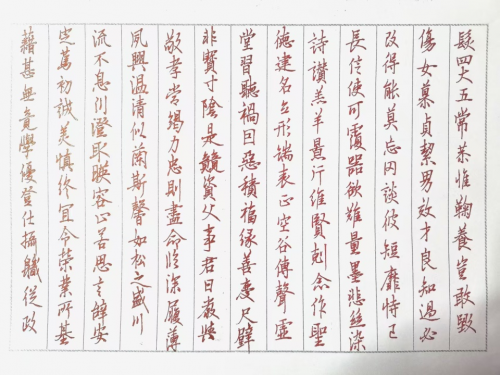 髮四大五常恭惟鞠養豈敢毀
傷女慕貞絜男效才良知過必
改得能莫忘罔談彼短靡恃己
長信使可覆器欲難量墨悲絲染
詩讚羔羊景行維賢剋念作聖
德建名立形端表正空谷傳聲虛
堂習聽禍因惡積福緣善慶尺璧
非寶寸陰是競資父事君曰嚴與
敬孝當竭力忠則盡命臨深履薄
夙興温清似蘭斯馨如松之盛川
流不息川澄取暎容止若思言辭安
定篤初誠美慎終宜令榮業所基
藉甚無竟學優登仕攝職從政